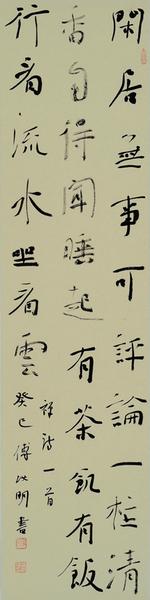 閑居無事可評論一炷清
香自得聞睡起有茶飢有飯
行看流水坐看雲
禪詩一首
癸巳傅此明書